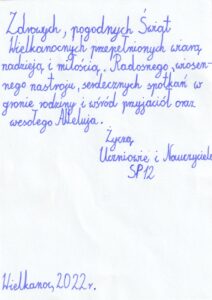 Zdrowych, pogodnych Świąt
Wielkanocnych przepełnionych wiarą,
nadzieją i miłością. Radosnego, wiosen-
nego nastroju, serdecznych spotkań w
gronie rodziny i wśród przyjaciół oraz
wesołego Alleluja.
Życzą
Uczniowie i Nauczyciele
SP12
Wielkanoc, 2022r.